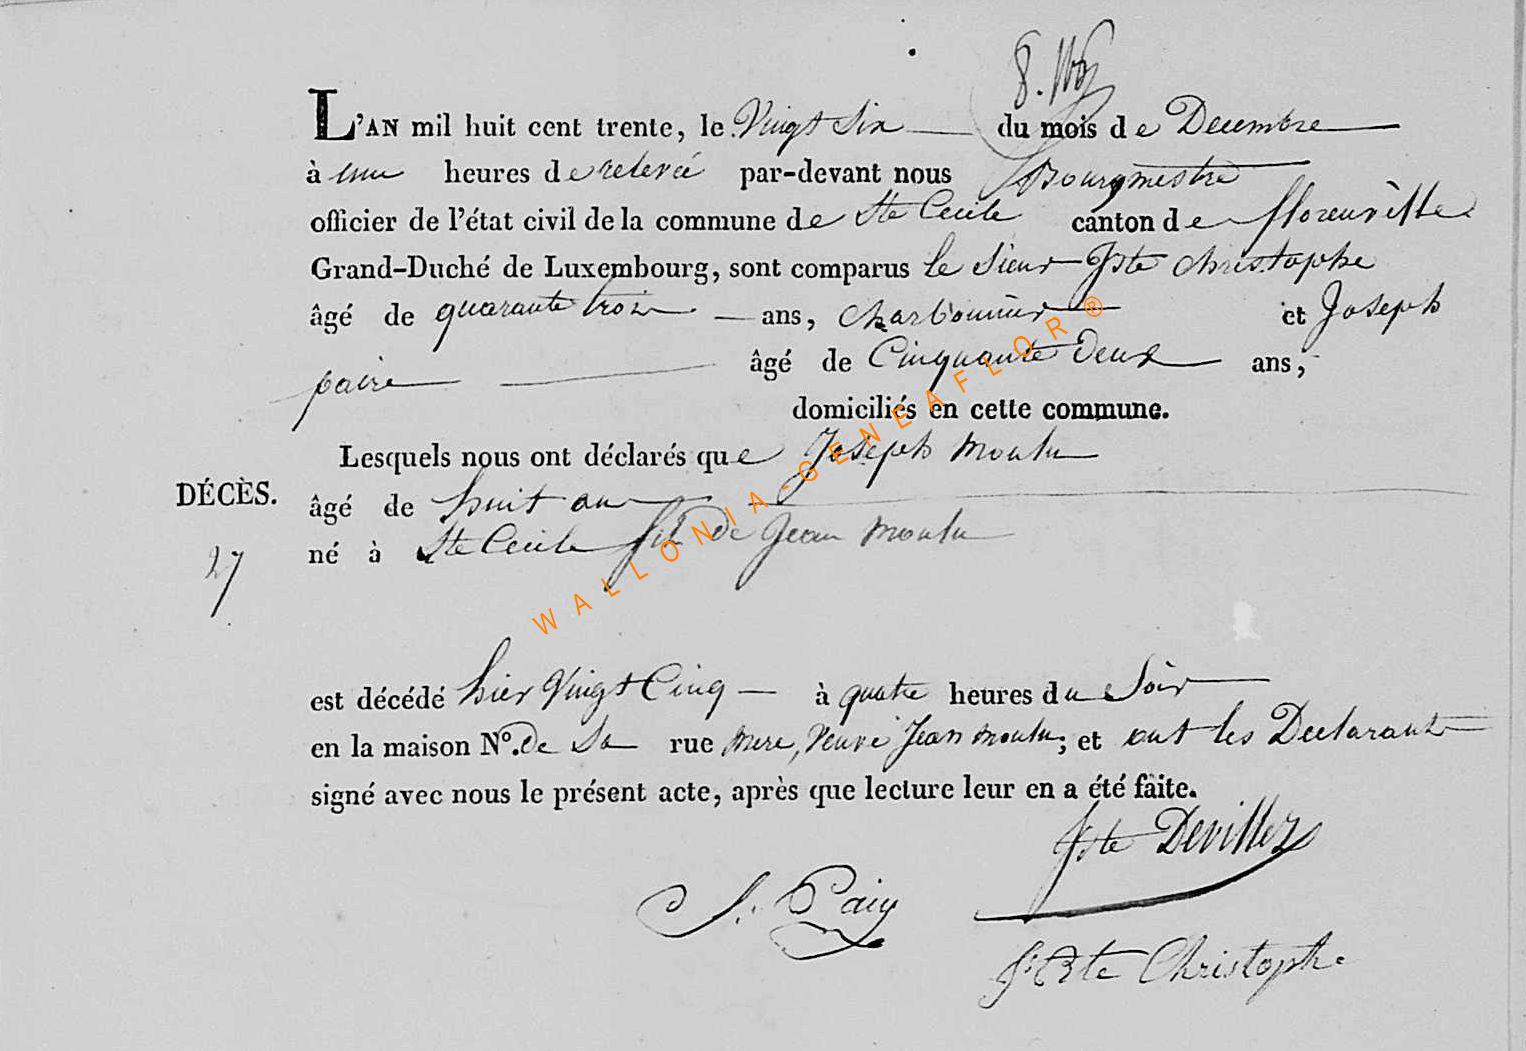 L'AN mil huit cent trente, le Vingt Six du mois de Decembre
à une heures de relevée par-devant nous Bourgmestre
officier de l'état civil de la commune de Ste Cecile canton de florenville
Grand-Duché de Luxembourg, sont comparus le Sieur Jste christophe
âgé de quarante trois ans, charbonnier et Joseph
paire âgé de Cinquante Deux ans,
domiciliés en cette commune.
Lesquels nous ont déclarés que Joseph moulu
DÉCÈS.
âgé de huit an
27
né à Ste Cecile fil de Jean moulu
est décédé hier Vingt Cinq à quatre heures du Soir
en la maison N°. de Sa rue mere, Veuve Jean moulu; et ont les Declarant
signé avec nous le présent acte, après que lecture leur en a été faite.
Jste Devillez
J. Paiy
J Bte Christophe
WALLONIA-GENEAFLOR®